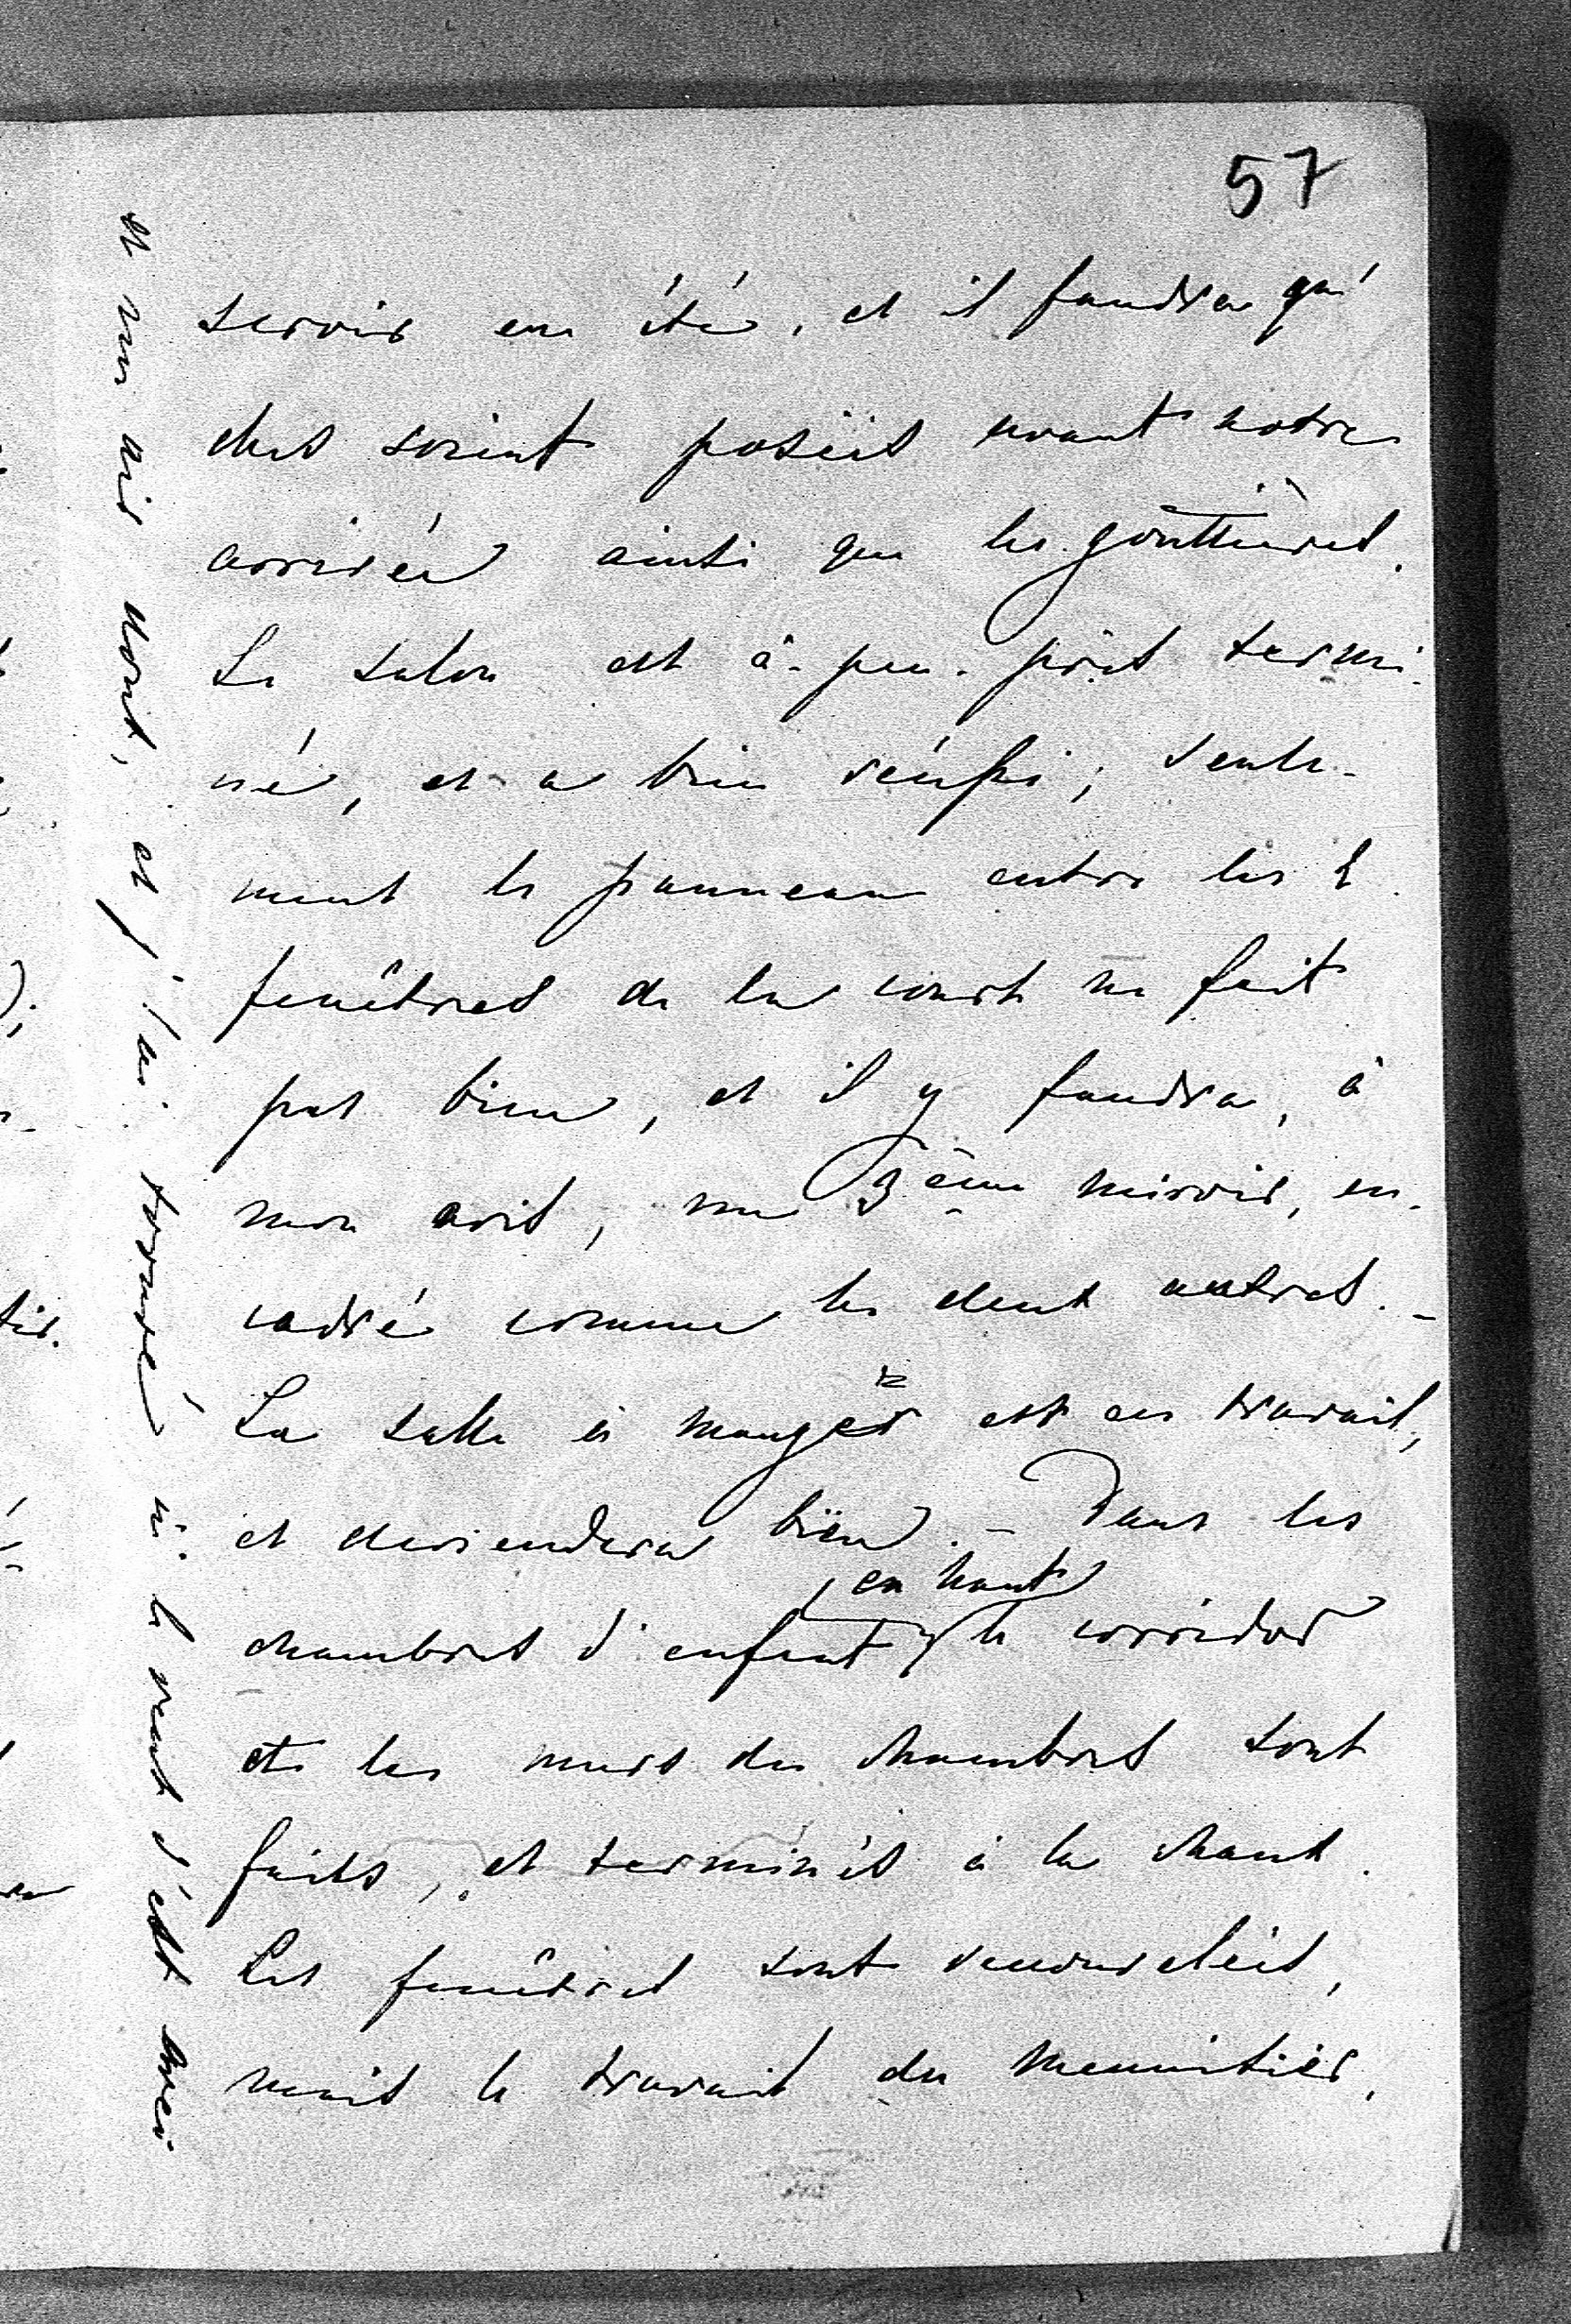 57
servir en été, et il faudra qu'
elles soient posées avant notre
arrivée ainsi que les gouttières.
Le salon est à-peu-près termi-
né, et a bien réussi; seule-
ment le panneau entre les 2
fenêtres de la cour ne fait
pas bien, et il y faudra, à
mon avis, un 3ème miroir, en-
cadré comme les deux autres. -
La salle à manger est en travail,
et deviendra bien. - Dans les
en haut
chambres d'enfant le corridor
et les murs des chambres sont
faits, et terminés à la chaux.
Les fenêtres sont renouvelées,
mais le travail du menuisier,
et mes vis dont, et j'ai trouvé le s'est